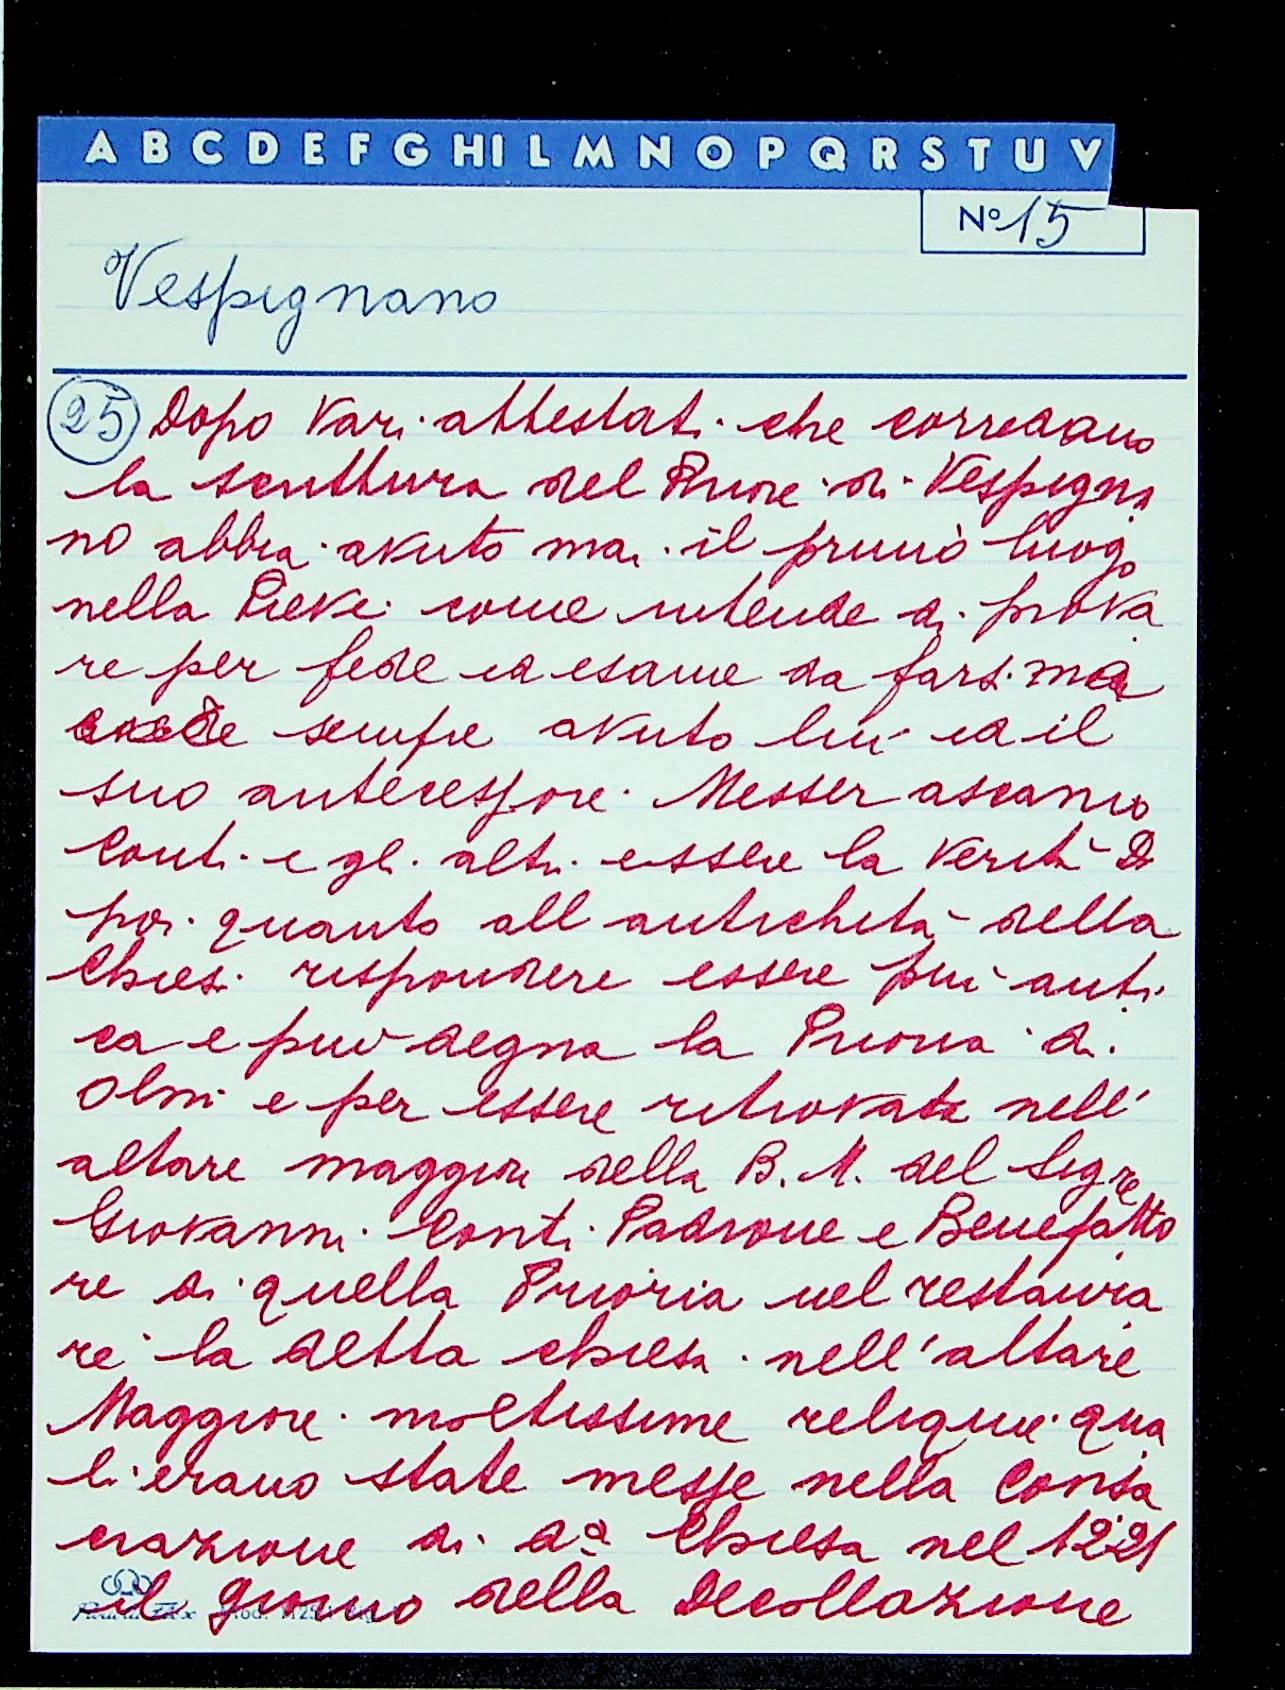 A B C D E F G HI L M N O P Q R S T U V
Nº 15
Vespignano
25 Dopo vari attestati che corredano
la scrittura del Priore di Vespigna
no abbia avuto mai il primo luogo
nella Pieve come intende di prova
re per fede ed esame da farsi ma
sempre avuto lui ed il
suo antecessore Messer ascanio
Conti e gli altri essere la verità Di
poi quanto all antichità della
Chiesi rispondere essere più anti
ca e più degna la Prioria di
Olmi e per essere ritrovate nell'
altare maggiore della B. M. del Sigre
Giovanni Conti Padrone e Benefatto
re di quella Prioria nel restaura
re la detta chiesa nell'altare
Maggiore moltissime reliquie qua
li erano state messe nella Consa
crazione di da Chiesa nel 1221
il giorno della Decollazione